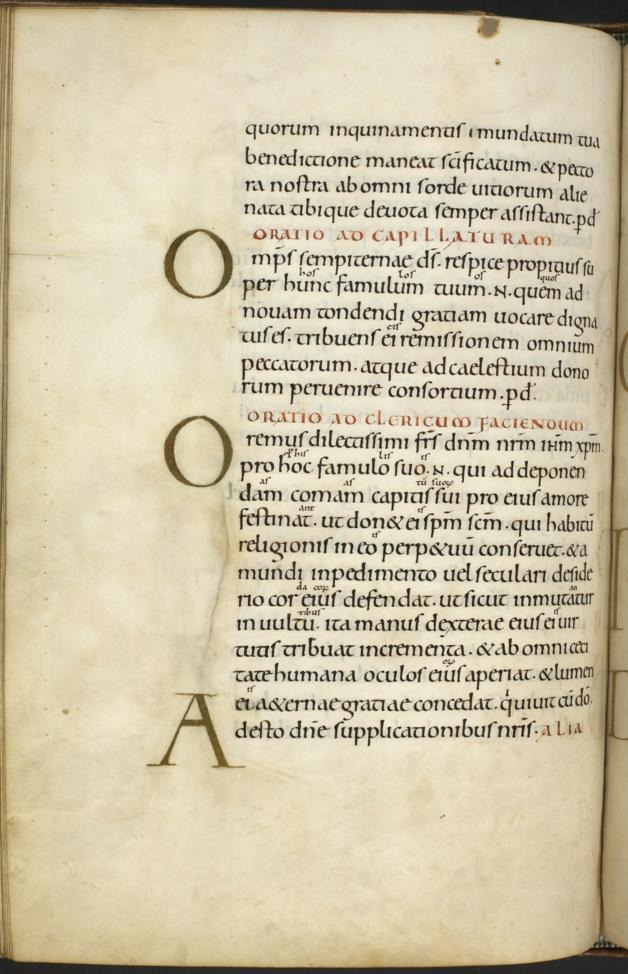 quorum inquinamentis i mundatum tua
benedictione maneat sc̄ificatum. & pecto
ra nostra ab omni sorde uitiorum alie
nata tibique deuota semper assistant. p̄d
ORATIO AD CAPILLATURAM
Omp̄s sempiternae d̄s. respice propitius su
hos los os quos
per hunc famulum tuum. N. quem ad
nouam tondendi gratiam uocare digna
eis
tus es. tribuens ei remissionem omnium
peccatorum. atque ad caelestium dono
rum peruenire consortium. p̄d.
ORATIO AD CLERICUM FACIENDUM
Oremus dilectissimi fr̄s dn̄m nr̄m ih̄m xp̄m.
his lis is
pro hoc famulo suo. N. qui ad deponen
as as tū suoꝝ
dam comam capitis sui pro eius amore
ant
festinat. ut don& ei sp̄m sc̄m. qui habitū
is
religionis in eo perp&uū conseruet. & a
mundi inpedimento uel seculari deside
da eoꝝ an
rio cor eius defendat. ut sicut inmutatur
tibus is
in uultū. ita manus dexterae eius ei uir
tutis tribuat incrementa. & ab omni ceci
oꝝ
tate humana oculos eius aperiat. & lumen
is
ei a&ernae gratiae concedat. q̇ uiuit cū dō.
Adesto dn̄e supplicationibus nr̄is. ALIA